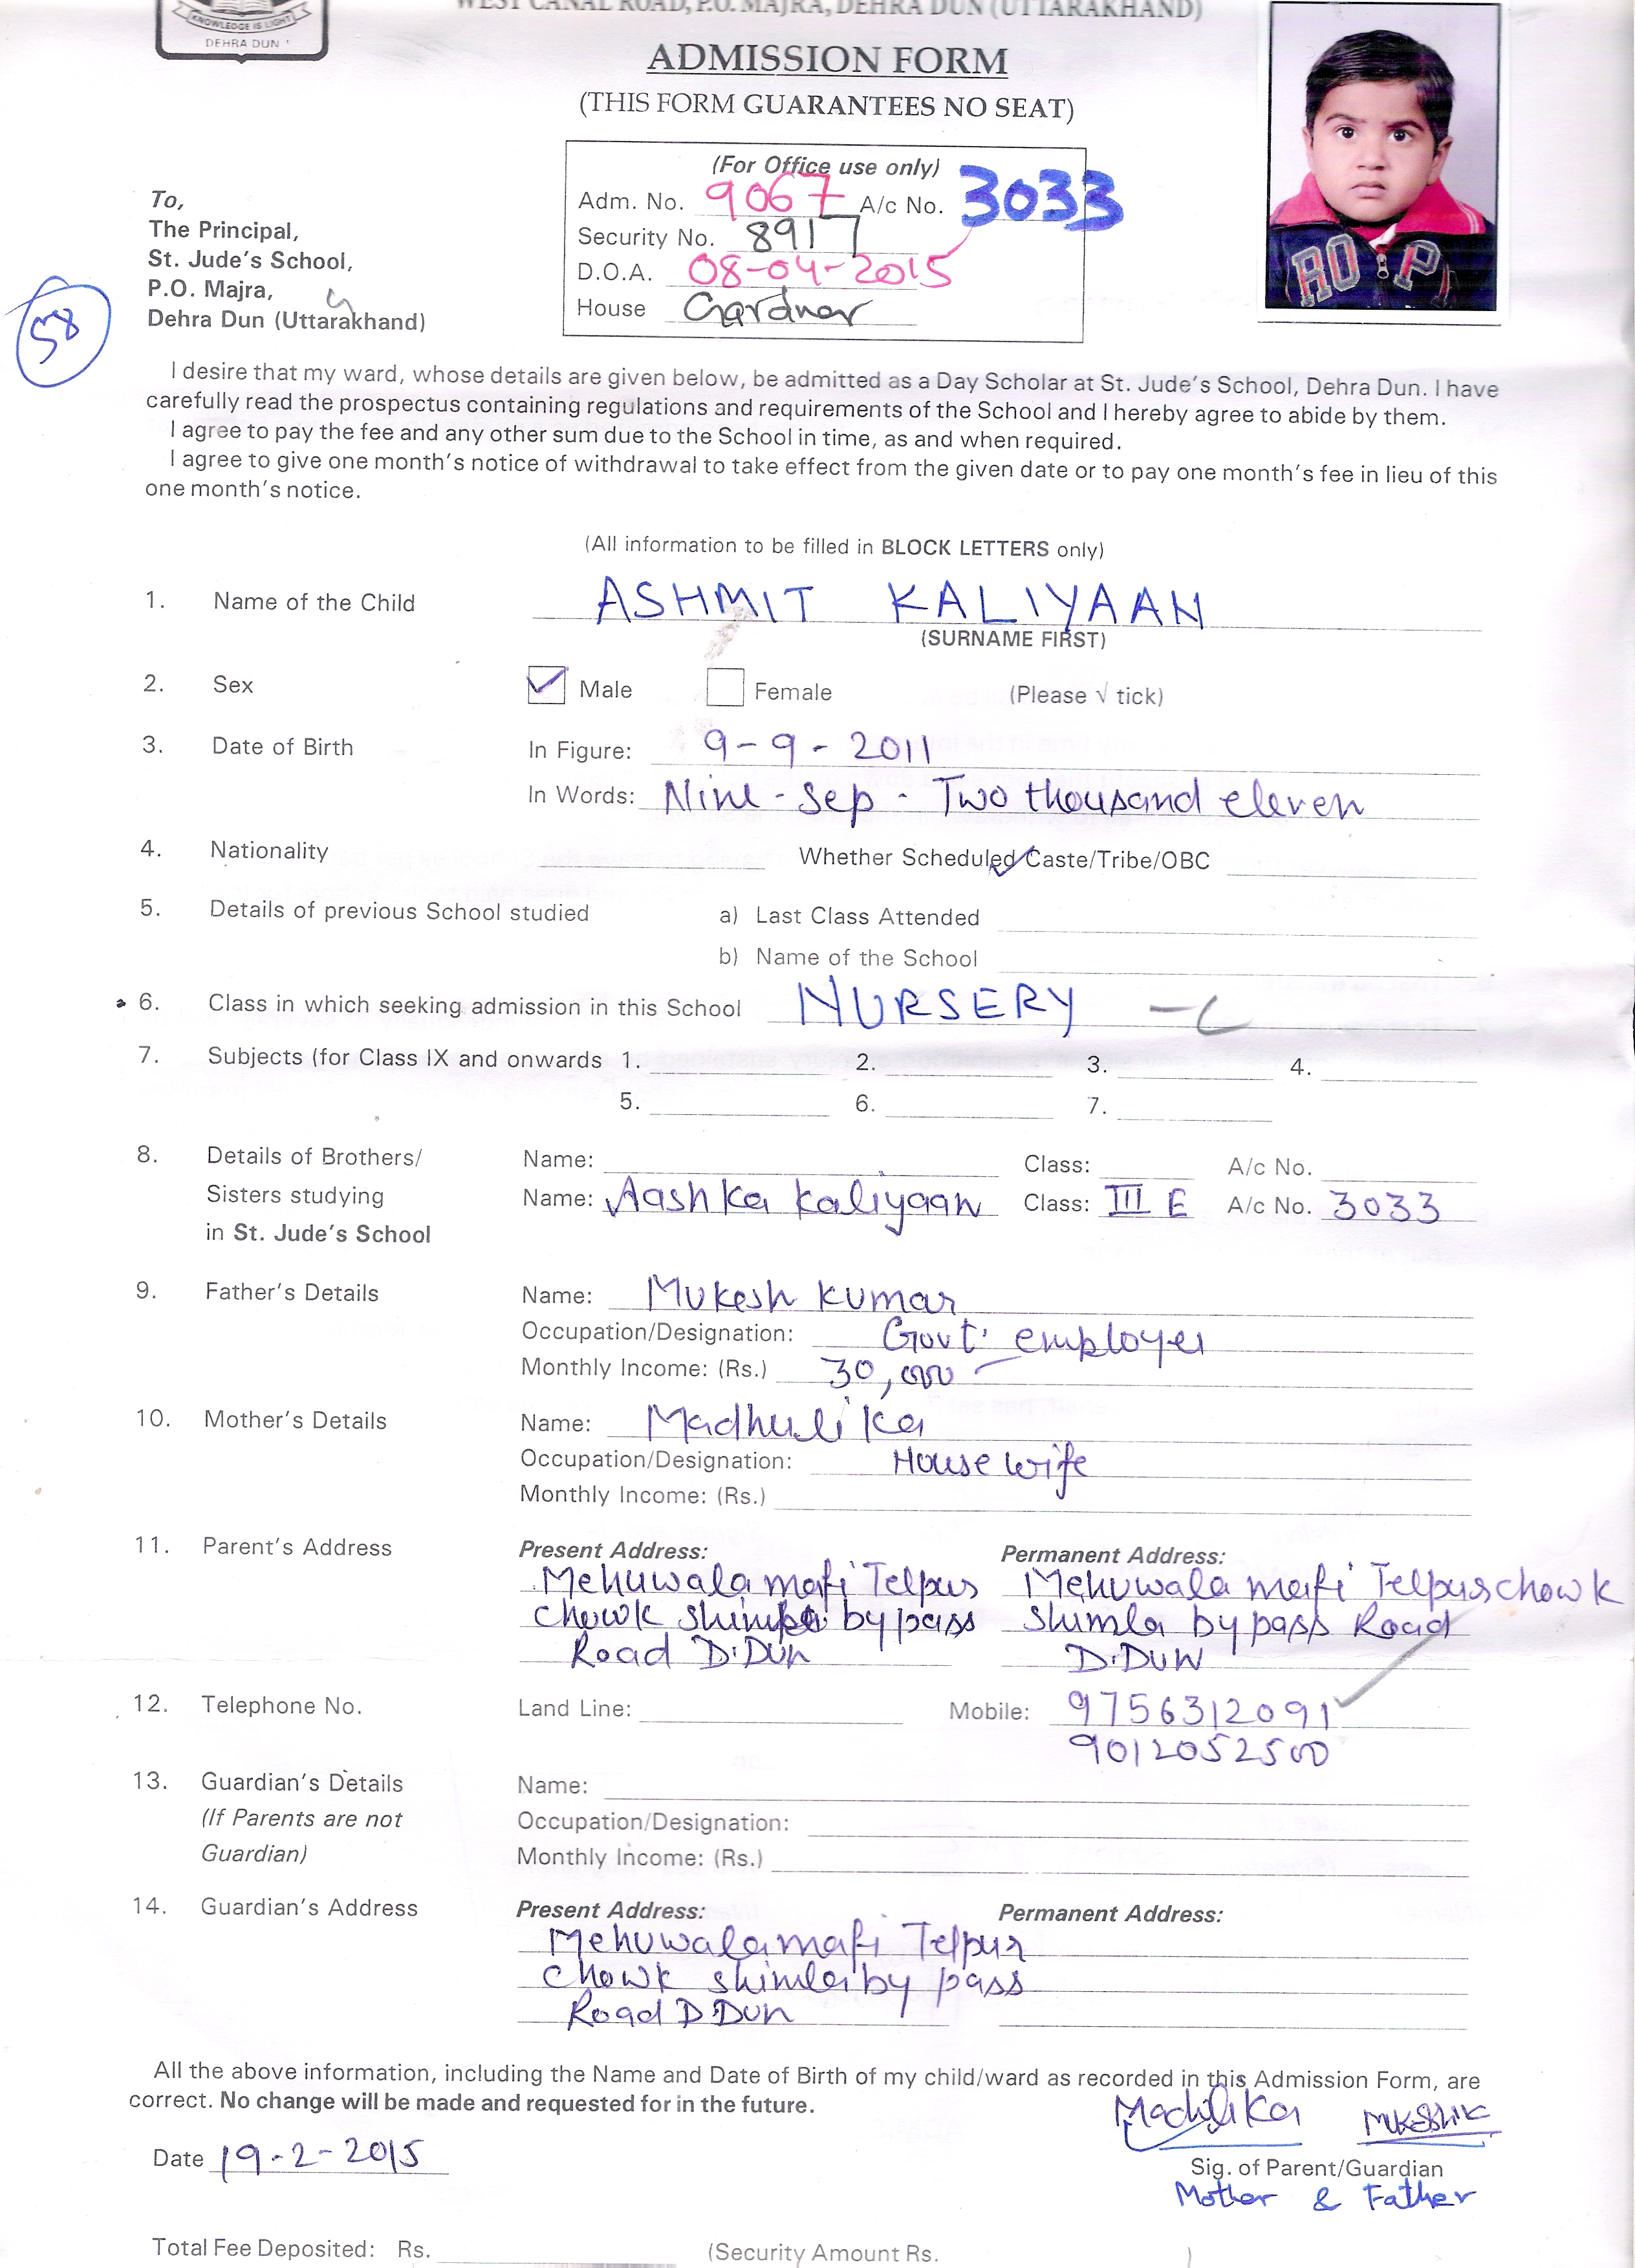 KNOWLEDGE IS LIGHT
DEHRA DUN
WEST CANAL ROAD, P.O. MAJRA, DEHRA DUN (UTTARAKHAND)
ADMISSION FORM
(THIS FORM GUARANTEES NO SEAT)
(For Office use only)
Adm. No. 9067 A/c No. 3033
Security No. 8917
D.O.A. 08-04-2015
House Gardner
To,
The Principal,
St. Jude's School,
P.O. Majra,
Dehra Dun (Uttarakhand)
58
ROP
I desire that my ward, whose details are given below, be admitted as a Day Scholar at St. Jude's School, Dehra Dun. I have
carefully read the prospectus containing regulations and requirements of the School and I hereby agree to abide by them.
I agree to pay the fee and any other sum due to the School in time, as and when required.
I agree to give one month's notice of withdrawal to take effect from the given date or to pay one month's fee in lieu of this
one month's notice.
(All information to be filled in BLOCK LETTERS only)
1. Name of the Child ASHMIT KALIYAAN
(SURNAME FIRST)
2. Sex Male Female (Please √ tick)
3. Date of Birth In Figure: 9-9-2011
In Words: Nine-Sep-Two thousand eleven
4. Nationality Whether Scheduled Caste/Tribe/OBC
5. Details of previous School studied a) Last Class Attended
b) Name of the School
6. Class in which seeking admission in this School NURSERY -C
7. Subjects (for Class IX and onwards 1. 2. 3. 4.
5. 6. 7.
8. Details of Brothers/ Name: Class: A/c No.
Sisters studying Name: Aashka Kaliyaan Class: III E A/c No. 3033
in St. Jude's School
9. Father's Details Name: Mukesh Kumar
Occupation/Designation: Govt. employer
Monthly Income: (Rs.) 30,000
10. Mother's Details Name: Madhulika
Occupation/Designation: House wife
Monthly Income: (Rs.)
11. Parent's Address Present Address: Permanent Address:
Mehuwala mafi Telpur Mehuwala mafi Telpur chowk
chowk by pass Shimla by pass Road
Road D.Dun D.DUN
12. Telephone No. Land Line: Mobile: 9756312091
9012052500
13. Guardian's Details Name:
(If Parents are not Occupation/Designation:
Guardian) Monthly Income: (Rs.)
14. Guardian's Address Present Address: Permanent Address:
Mehuwala mafi Telpur
chowk shimla by pass
Road D.Dun
All the above information, including the Name and Date of Birth of my child/ward as recorded in this Admission Form, are
correct. No change will be made and requested for in the future.
Madhulika
Date 19-2-2015
Sig. of Parent/Guardian
Mother & Father
Total Fee Deposited: Rs. (Security Amount Rs. )